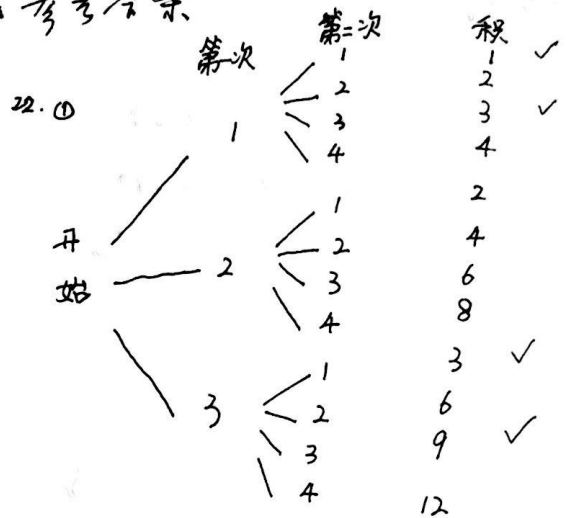 参考答案
第一次 第二次 积
22. ①
1 1 1 ✓
2 2
3 3 ✓
4 4
开始
2 1 2
2 4
3 6
4 8
3 1 3 ✓
2 6
3 9 ✓
4 12